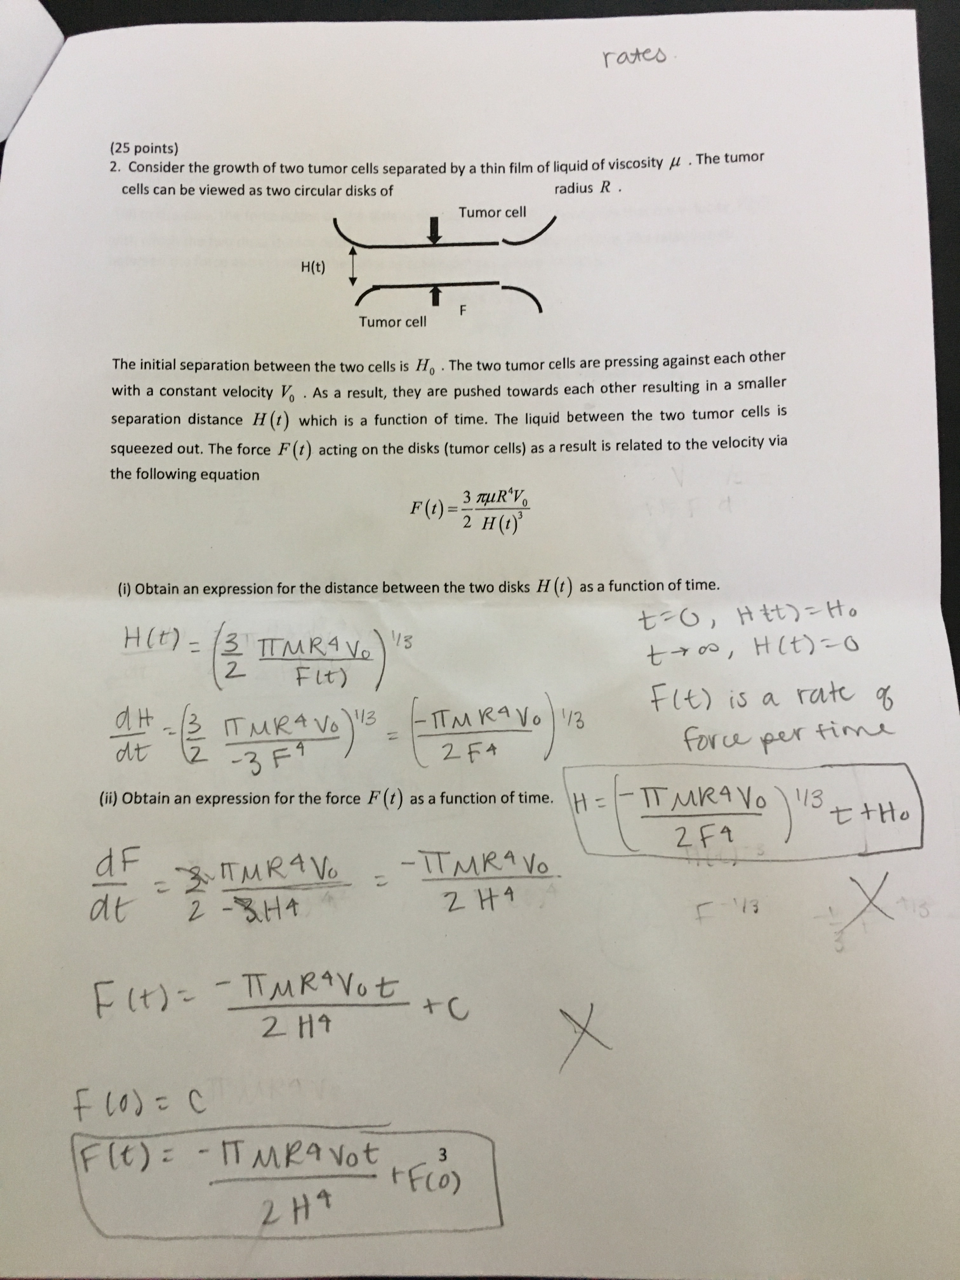 rates.
(25 points)
2. Consider the growth of two tumor cells separated by a thin film of liquid of viscosity μ . The tumor
cells can be viewed as two circular disks of radius R .
Tumor cell
H(t)
F
Tumor cell
The initial separation between the two cells is H₀ . The two tumor cells are pressing against each other
with a constant velocity V₀ . As a result, they are pushed towards each other resulting in a smaller
separation distance H(t) which is a function of time. The liquid between the two tumor cells is
squeezed out. The force F(t) acting on the disks (tumor cells) as a result is related to the velocity via
the following equation
F(t) = 3/2 πμR⁴V₀ / H(t)³
(i) Obtain an expression for the distance between the two disks H(t) as a function of time.
t=0, H(t)=H₀
t→∞, H(t)=0
H(t) = (3/2 πMR⁴V₀ / F(t))^1/3
F(t) is a rate of
force per time
dH/dt = (3/2 πMR⁴V₀ / -3F⁴)^1/3 = (-πMR⁴V₀ / 2F⁴)^1/3
(ii) Obtain an expression for the force F(t) as a function of time.
H = (-πMR⁴V₀ / 2F⁴)^1/3 t + H₀
dF/dt = 3/2 πMR⁴V₀ / -3H⁴ = -πMR⁴V₀ / 2H⁴
X
F(t) = -πMR⁴V₀t / 2H⁴ + C
X
F(0) = C
F(t) = -πMR⁴V₀t / 2H⁴ + F(0)
3